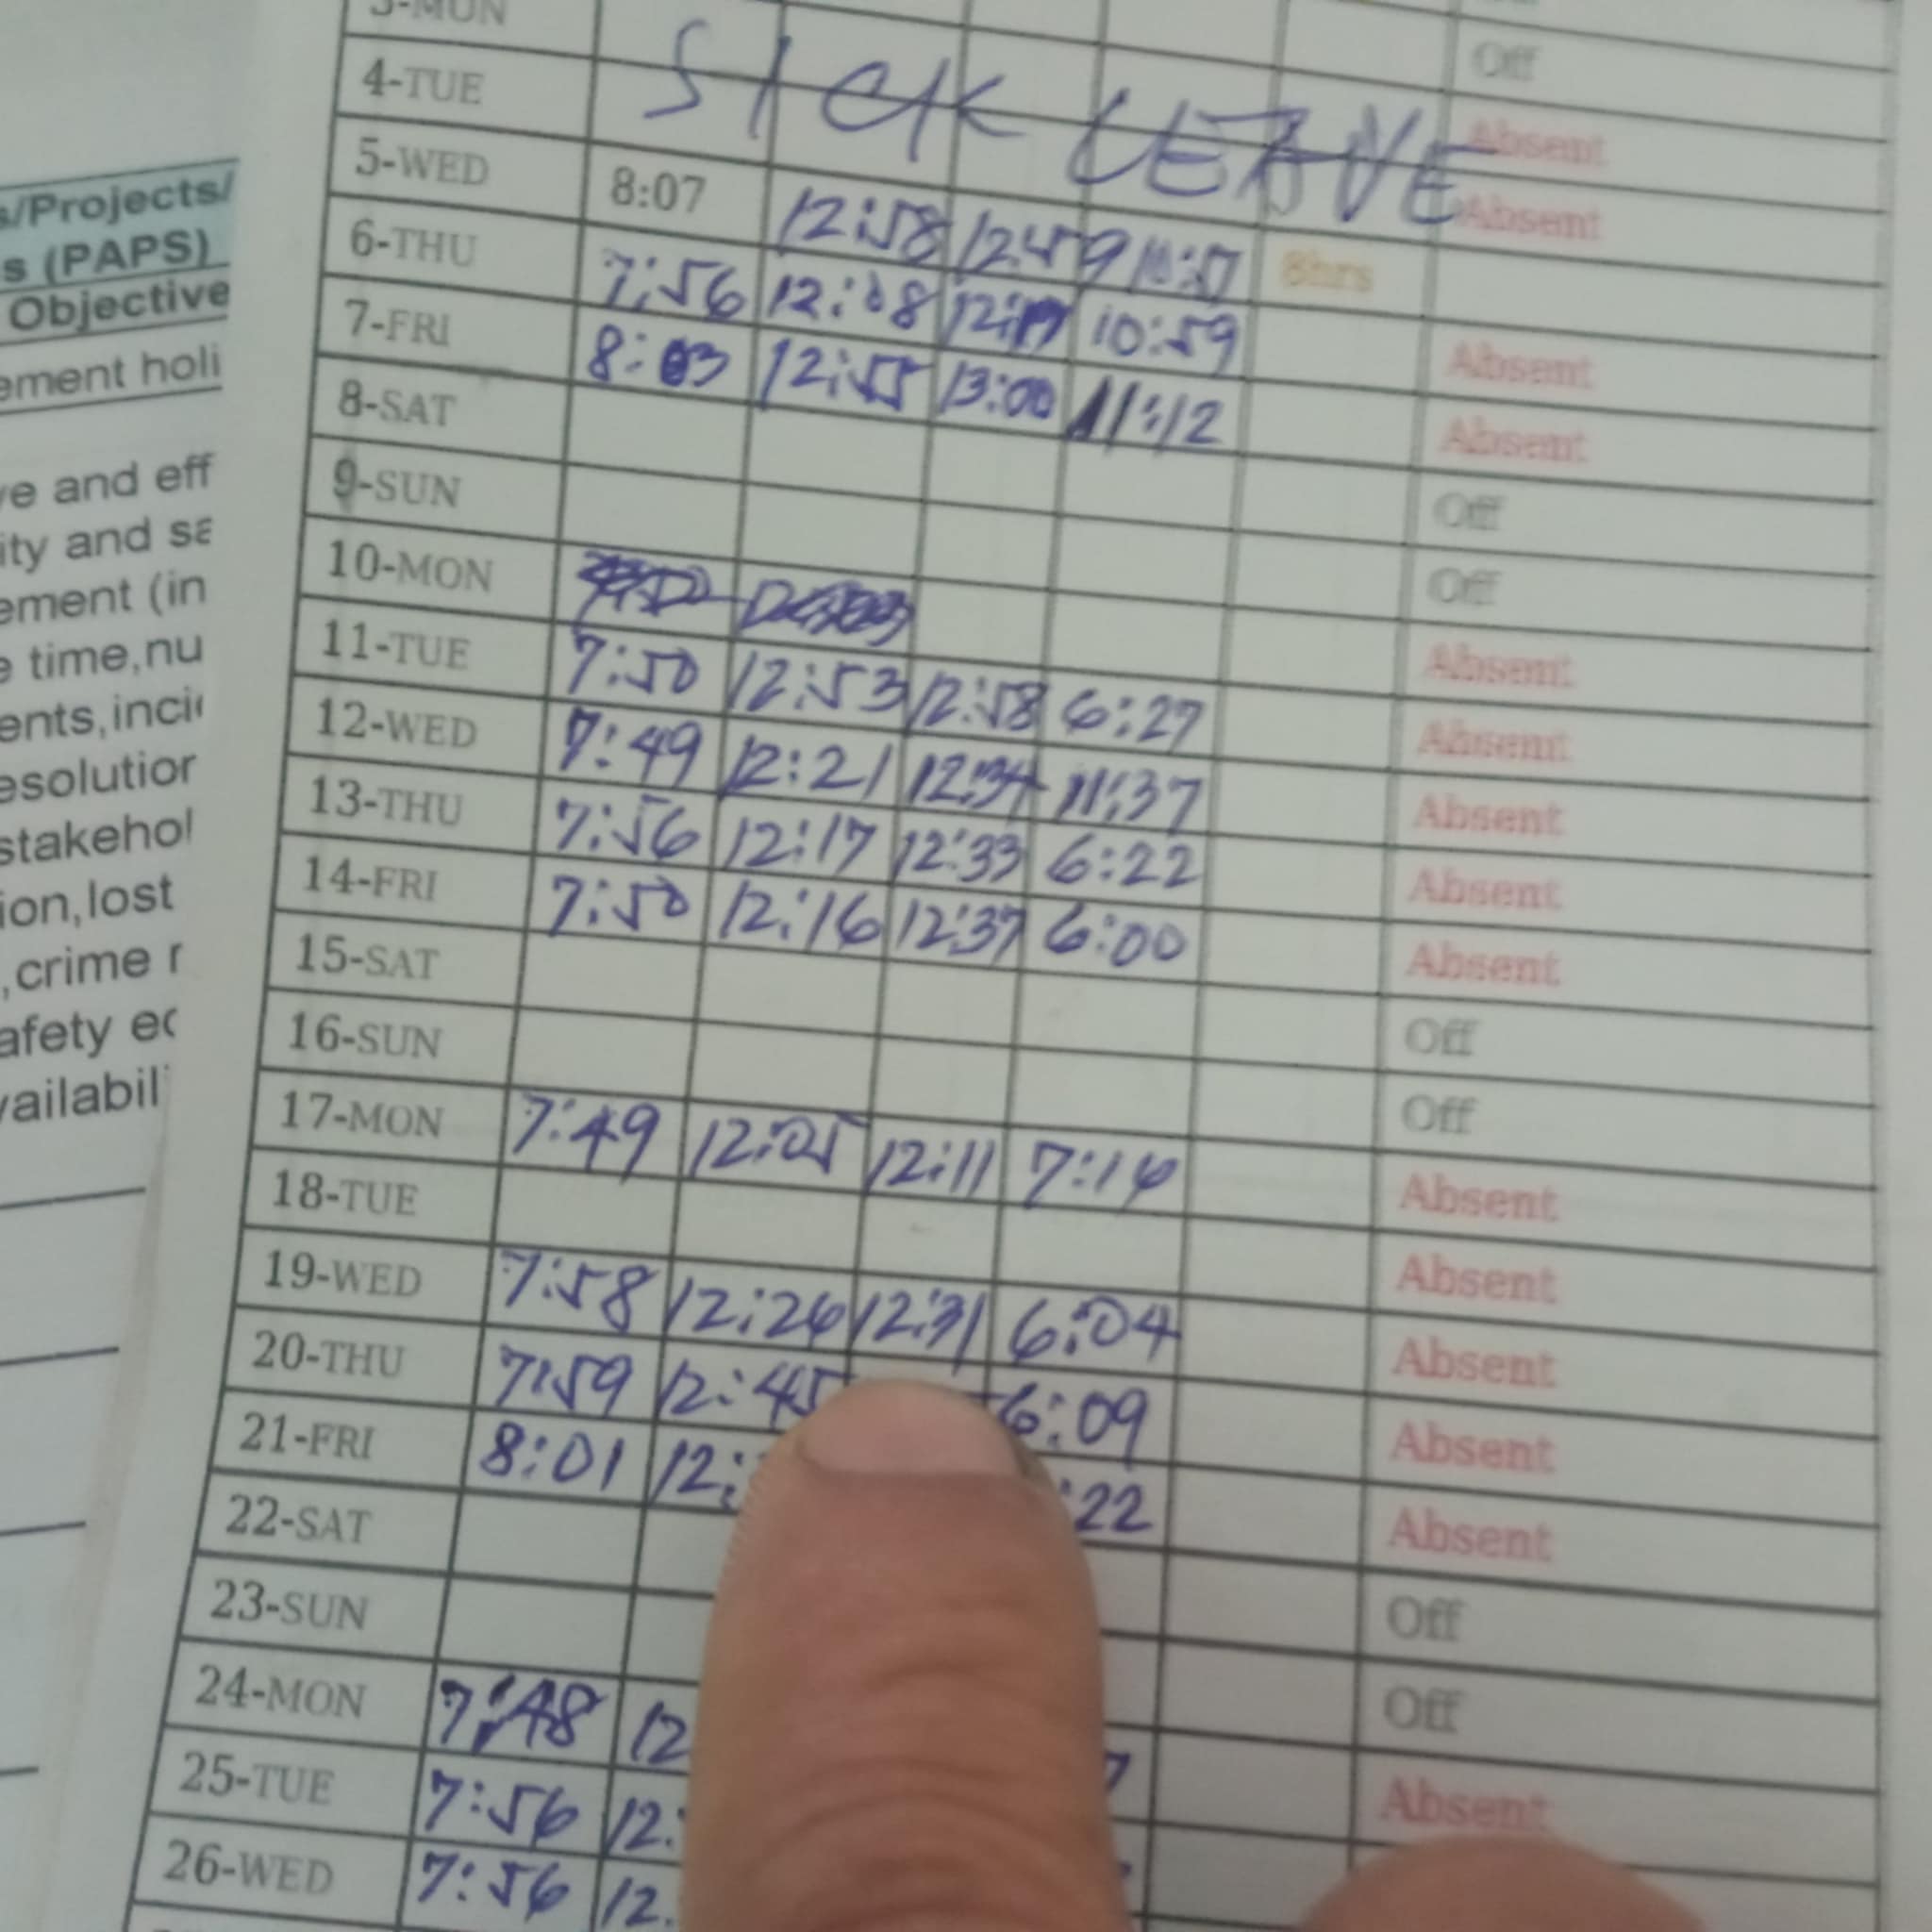 3-MON Off
4-TUE SICK LEAVE Absent
5-WED 8:07 12:58 12:59 Absent
6-THU 7:56 12:08 10:59 8hrs
7-FRI 8:03 12:55 13:00 11:12 Absent
8-SAT Absent
9-SUN Off
10-MON Off
11-TUE 7:50 12:53 12:58 6:27 Absent
12-WED 7:49 12:21 12:34 11:37 Absent
13-THU 7:56 12:17 12:33 6:22 Absent
14-FRI 7:50 12:16 12:37 6:00 Absent
15-SAT Absent
16-SUN Off
17-MON 7:49 12:05 12:11 7:14 Off
18-TUE Absent
19-WED 7:58 12:26 12:31 6:04 Absent
20-THU 7:59 12:45 6:09 Absent
21-FRI 8:01 12: :22 Absent
22-SAT Absent
23-SUN Off
24-MON 7:48 12 Off
25-TUE 7:56 12: Absent
26-WED 7:56 12.
s/Projects/
s (PAPS)
Objective
ement holi
ve and eff
ity and sa
ement (in
e time,nu
ents,inci
esolution
stakehol
ion,lost
,crime r
afety ec
vailabil